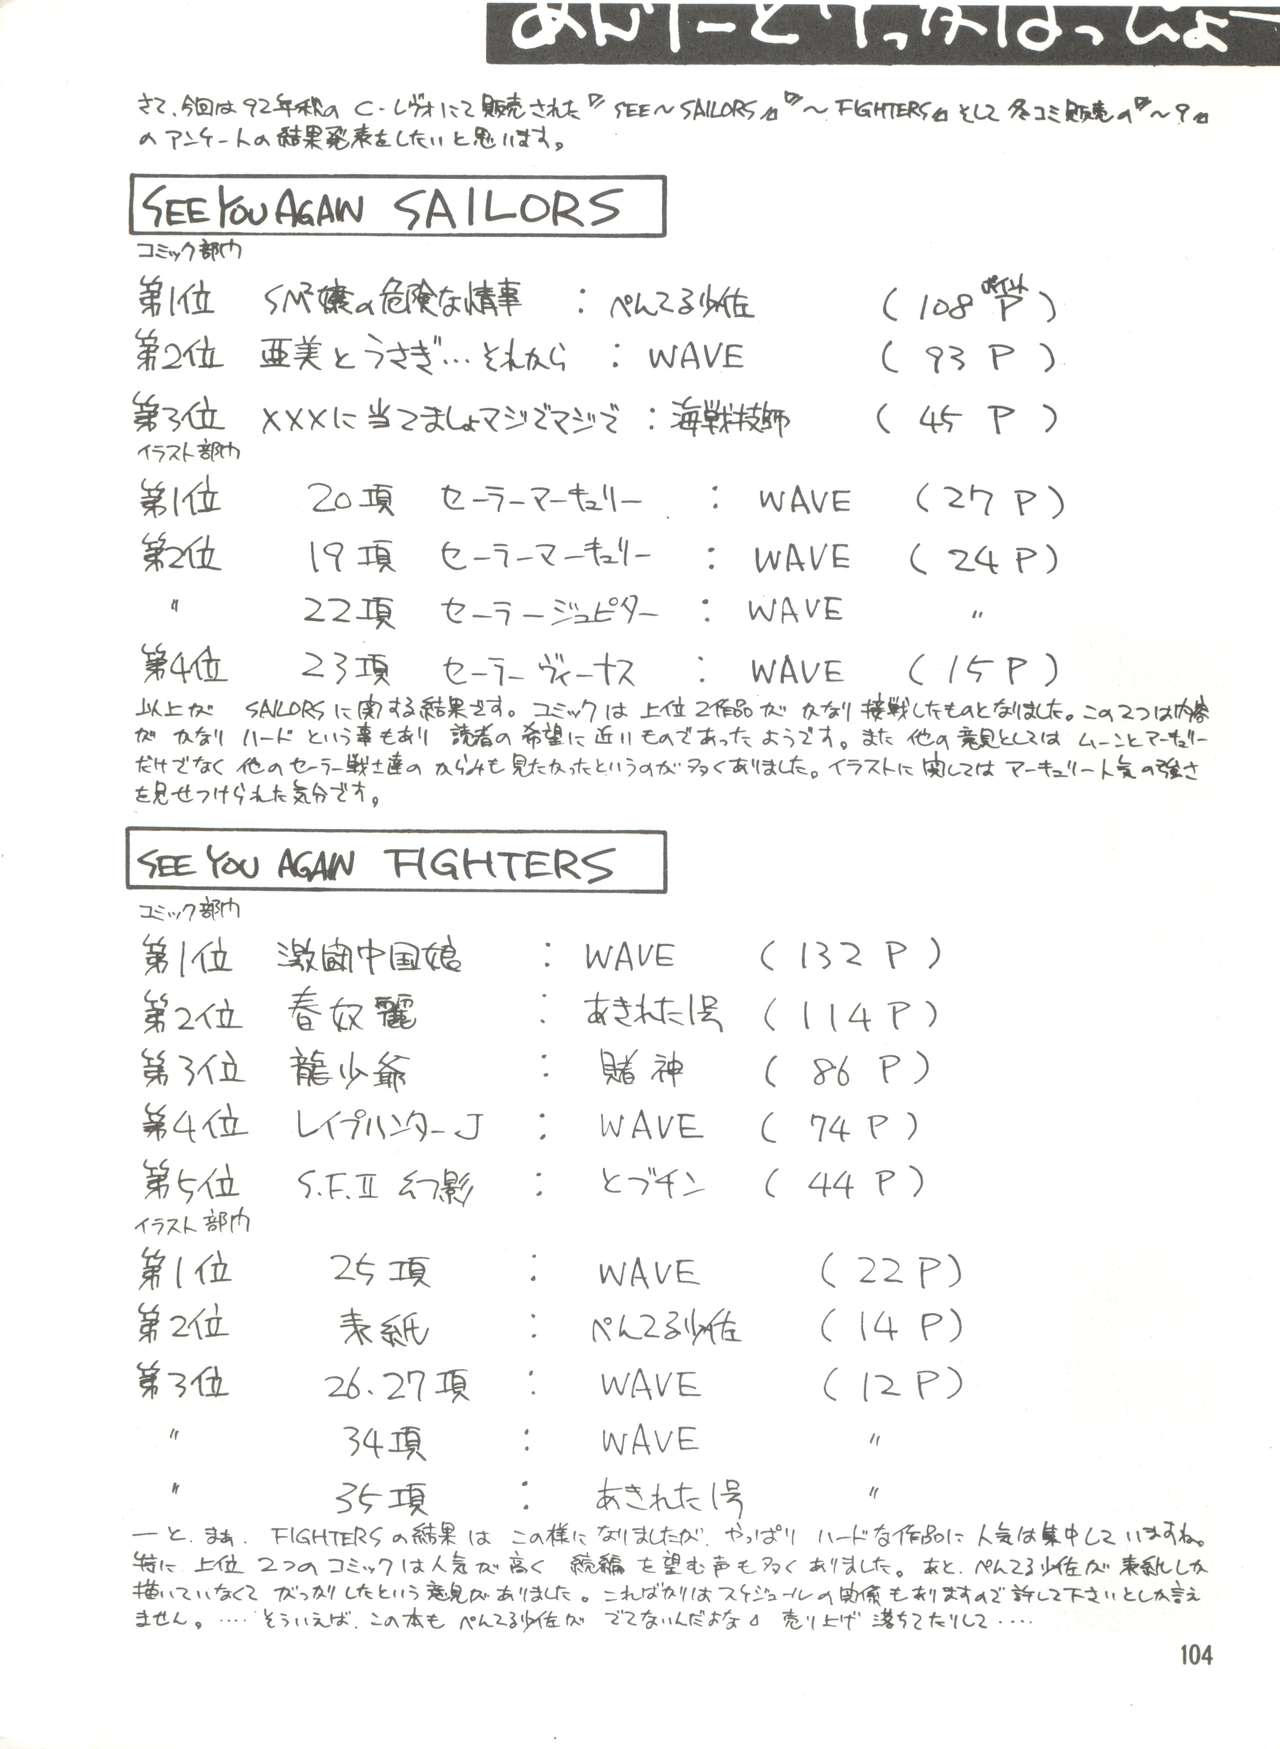 あんけーとけっかはっぴょー
さて、今回は92年秋の C・レヴォにて販売された『SEE〜SAILORS』『〜FIGHTERS』そして冬コミ販売の『〜9』
のアンケートの結果発表をしたいと思います。
SEE YOU AGAIN SAILORS
コミック部門
第1位 SM嬢の危険な情事 : ぺんてる少佐 (108 P) ポイント
第2位 亜美とうさぎ…それから : WAVE (93 P)
第3位 ×××に当てましょマジでマジで : 海戦技師 (45 P)
イラスト部門
第1位 20項 セーラーマーキュリー : WAVE (27 P)
第2位 19項 セーラーマーキュリー : WAVE (24 P)
〃 22項 セーラージュピター : WAVE 〃
第4位 23項 セーラーヴィーナス : WAVE (15 P)
以上が SAILORSに関する結果です。コミックは上位2作品が かなり接戦したものとなりました。この2つは内容
が かなり ハード という事もあり 読者の希望に近いものであったようです。また 他の意見としては ムーンとマーキュリー
だけでなく 他のセーラー戦士達の からみも見たかったというのが多くありました。イラストに関しては マーキュリー人気の強さ
を見せつけられた気分です。
SEE YOU AGAIN FIGHTERS
コミック部門
第1位 激闘中国娘 : WAVE (132 P)
第2位 春奴麗 : あきれた1号 (114 P)
第3位 龍少爺 : 賭神 (86 P)
第4位 レイプハンターJ : WAVE (74 P)
第5位 S.F.II 幻影 : とブチン (44 P)
イラスト部門
第1位 25項 : WAVE (22 P)
第2位 表紙 : ぺんてる少佐 (14 P)
第3位 26.27項 : WAVE (12 P)
〃 34項 : WAVE 〃
〃 35項 : あきれた1号 〃
ーと、まぁ、FIGHTERSの結果は この様になりましたが、やっぱり ハードな作品に 人気は集中していますね。
特に 上位 2つのコミックは人気が高く 続編を望む声も多くありました。あと、ぺんてる少佐が 表紙しか
描いていなくて がっかりしたという意見がありました。こればかりはスケジュールの関係もありますので許して下さいとしか言え
ません。‥‥そういえば、この本も ぺんてる少佐が でてないんだよな 売り上げ 落ちてたりして‥‥
104